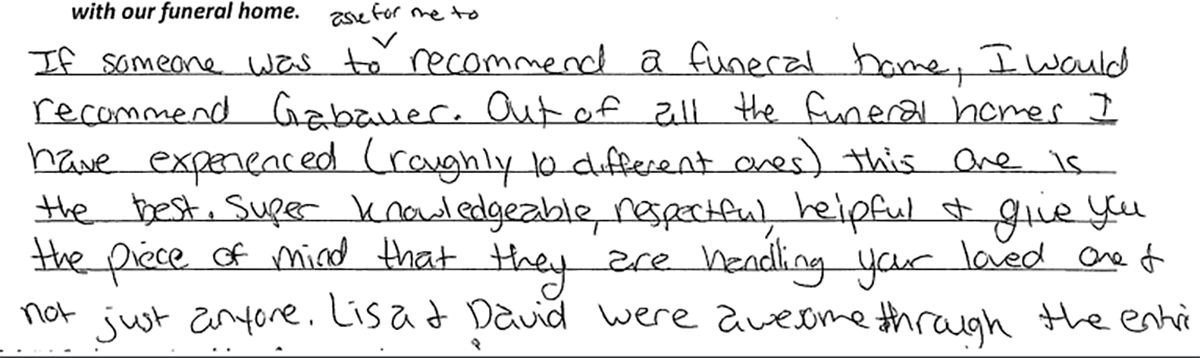 with our funeral home.
ask for me to
If someone was to recommend a funeral home, I would
recommend Gabauer. Out of all the funeral homes I
have experienced (roughly 10 different ones) this one is
the best. Super knowledgeable, respectful, helpful & give you
the piece of mind that they are handling your loved one &
not just anyone. Lisa & David were awesome through the entir